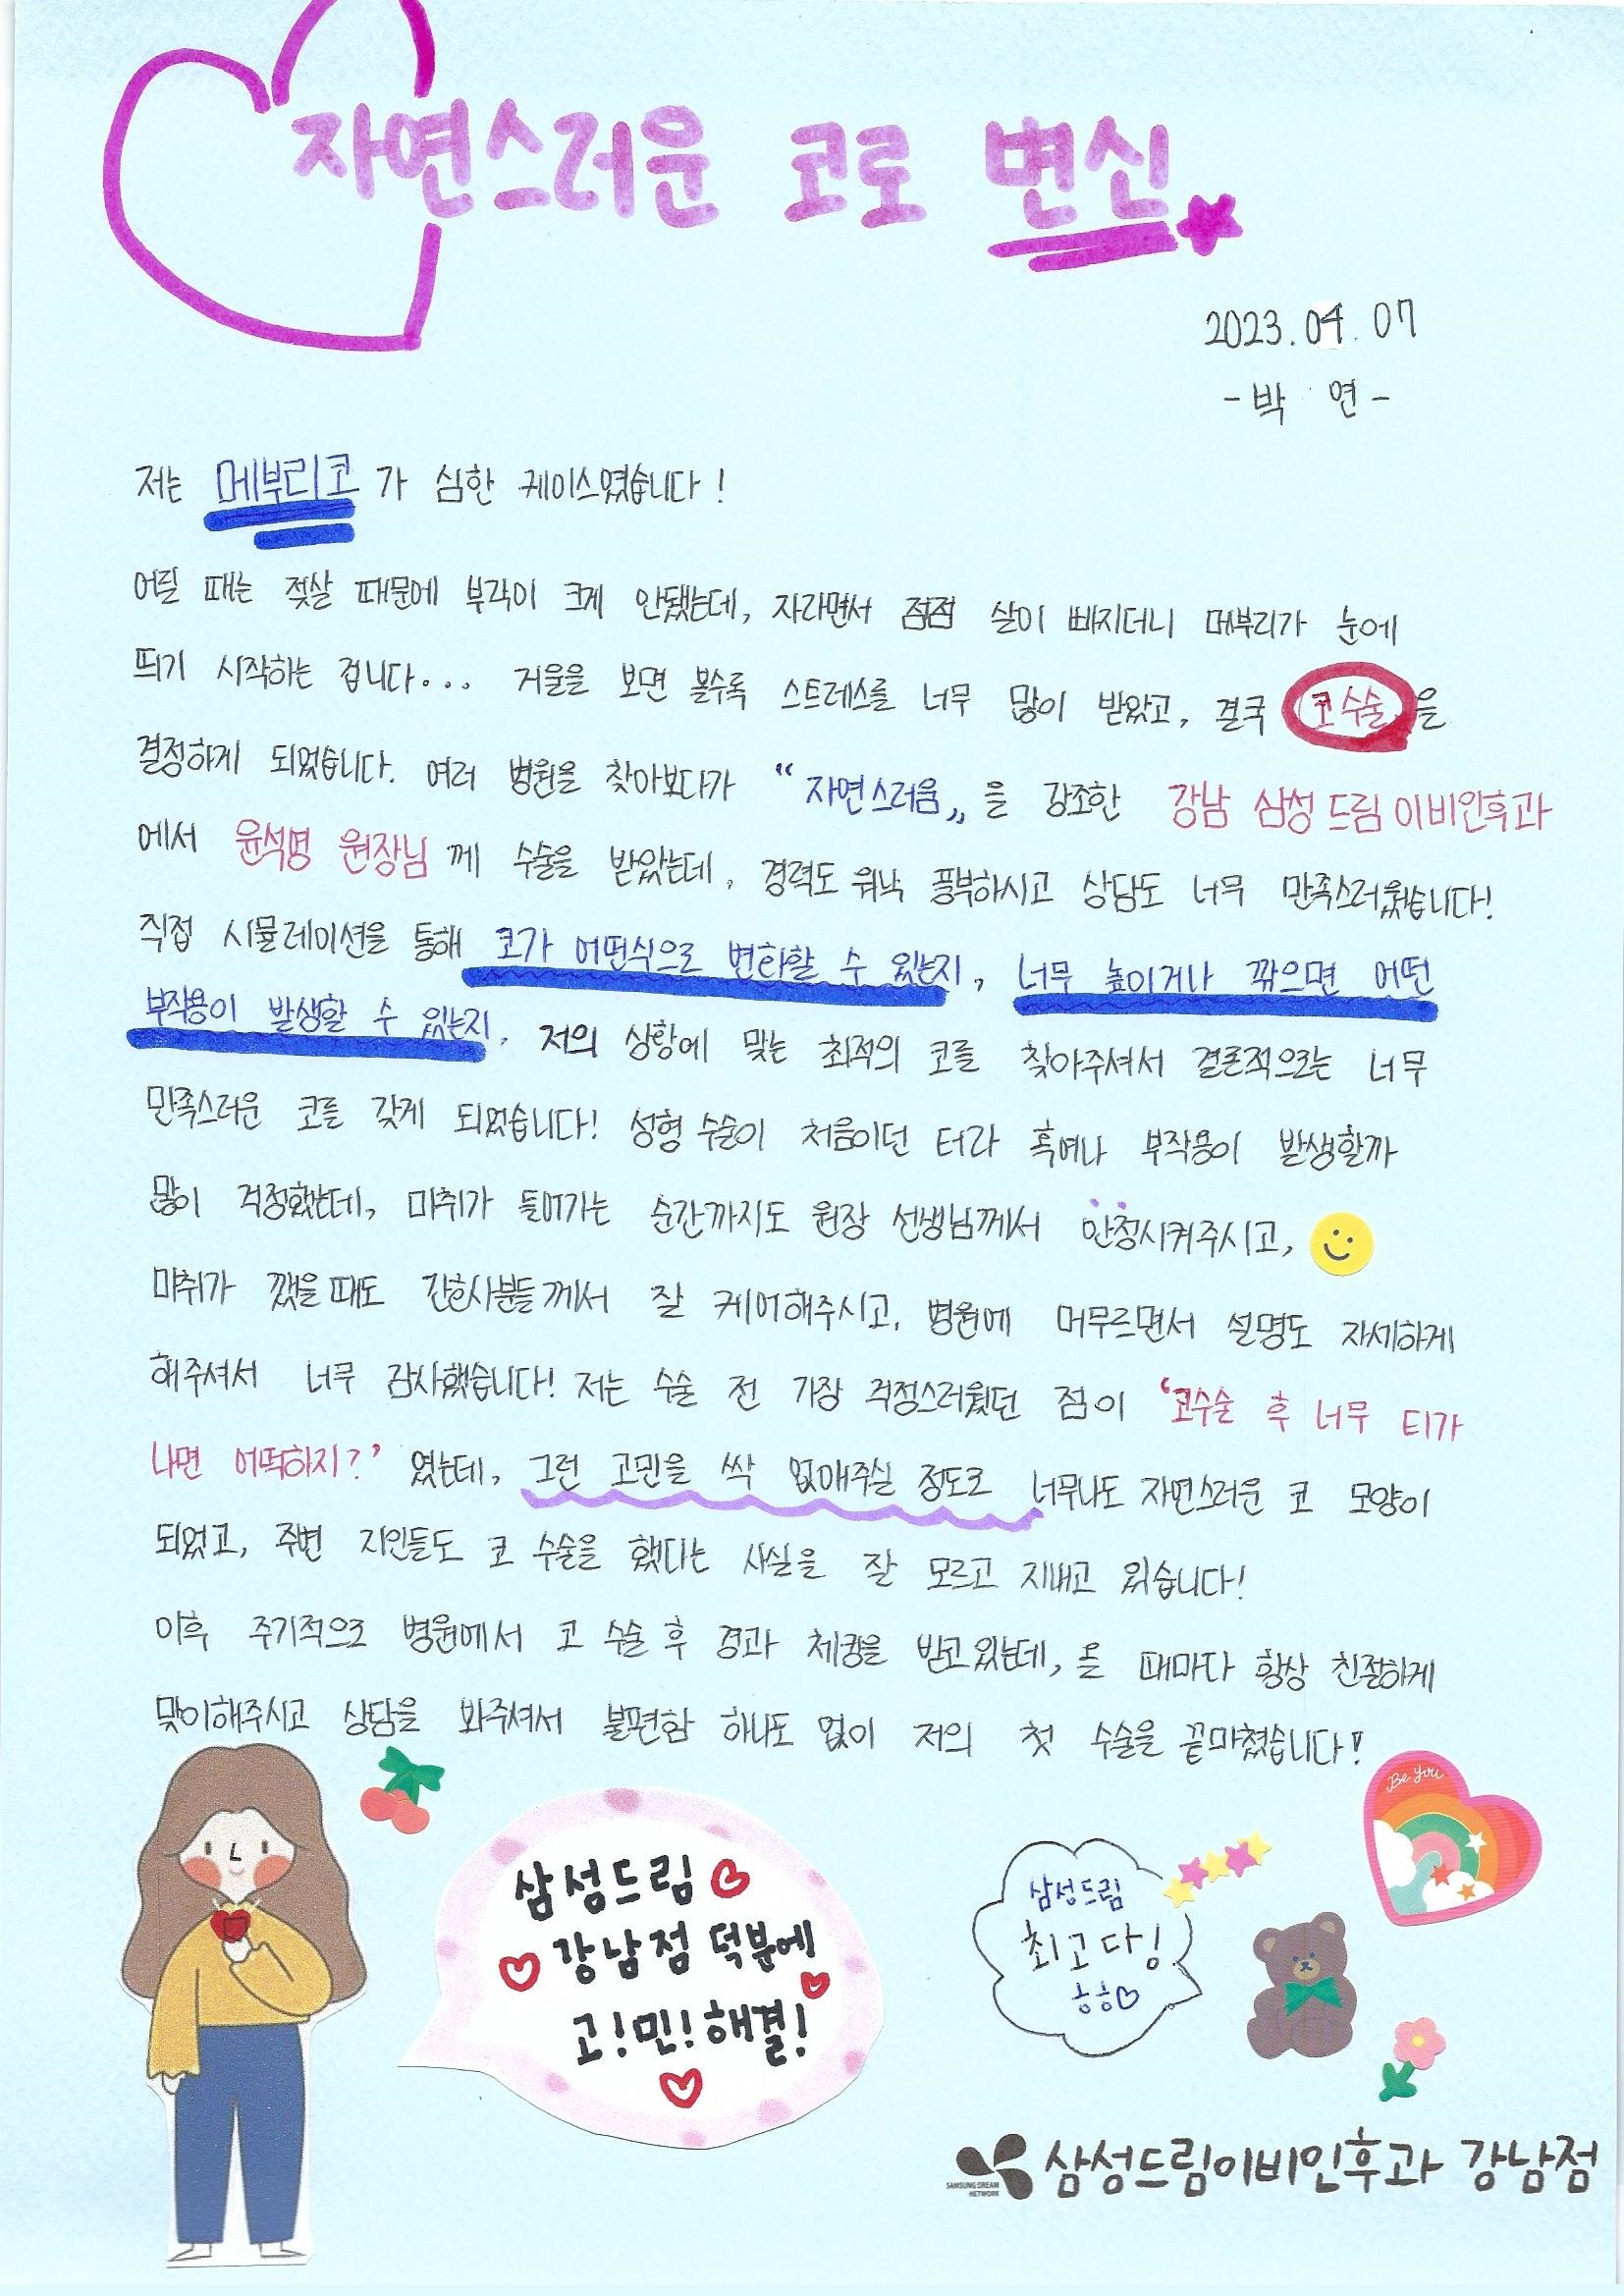 자연스러운 코로 변신
2023.04.07
-박 연-
저는 메부리코가 심한 케이스였습니다!
어릴 때는 젖살 때문에 부각이 크게 안됐는데, 자라면서 점점 살이 빠지더니 메부리가 눈에
띄기 시작하는 겁니다... 거울을 보면 볼수록 스트레스를 너무 많이 받았고, 결국 코수술을
결정하게 되었습니다. 여러 병원을 찾아보다가 “자연스러움„을 강조한 강남 삼성드림이비인후과
에서 윤석명 원장님께 수술을 받았는데, 경력도 워낙 풍부하시고 상담도 너무 만족스러웠습니다!
직접 시뮬레이션을 통해 코가 어떤식으로 변화할 수 있는지, 너무 높이거나 깎으면 어떤
부작용이 발생할 수 있는지, 저의 상황에 맞는 최적의 코를 찾아주셔서 결론적으로는 너무
만족스러운 코를 갖게 되었습니다! 성형 수술이 처음이던 터라 혹여나 부작용이 발생할까
많이 걱정했는데, 마취가 들어가는 순간까지도 원장 선생님께서 안정시켜주시고,
마취가 깼을때도 간호사분들께서 잘 케어해주시고, 병원에 머무르면서 설명도 자세하게
해주셔서 너무 감사했습니다! 저는 수술 전 가장 걱정스러웠던 점이 ‘코수술 후 너무 티가
나면 어떡하지?’ 였는데, 그런 고민을 싹 없애주실 정도로 너무나도 자연스러운 코 모양이
되었고, 주변 지인들도 코 수술을 했다는 사실을 잘 모르고 지내고 있습니다!
이후 주기적으로 병원에서 코 수술 후 경과 체킹을 받고있는데, 올 때마다 항상 친절하게
맞이해주시고 상담을 봐주셔서 불편함 하나도 없이 저의 첫 수술을 끝마쳤습니다!
Be You
삼성드림
강남점 덕분에
고!민!해결!
삼성드림
최고다!
ㅎㅎ♡
SAMSUNG DREAM
NETWORK
삼성드림이비인후과 강남점